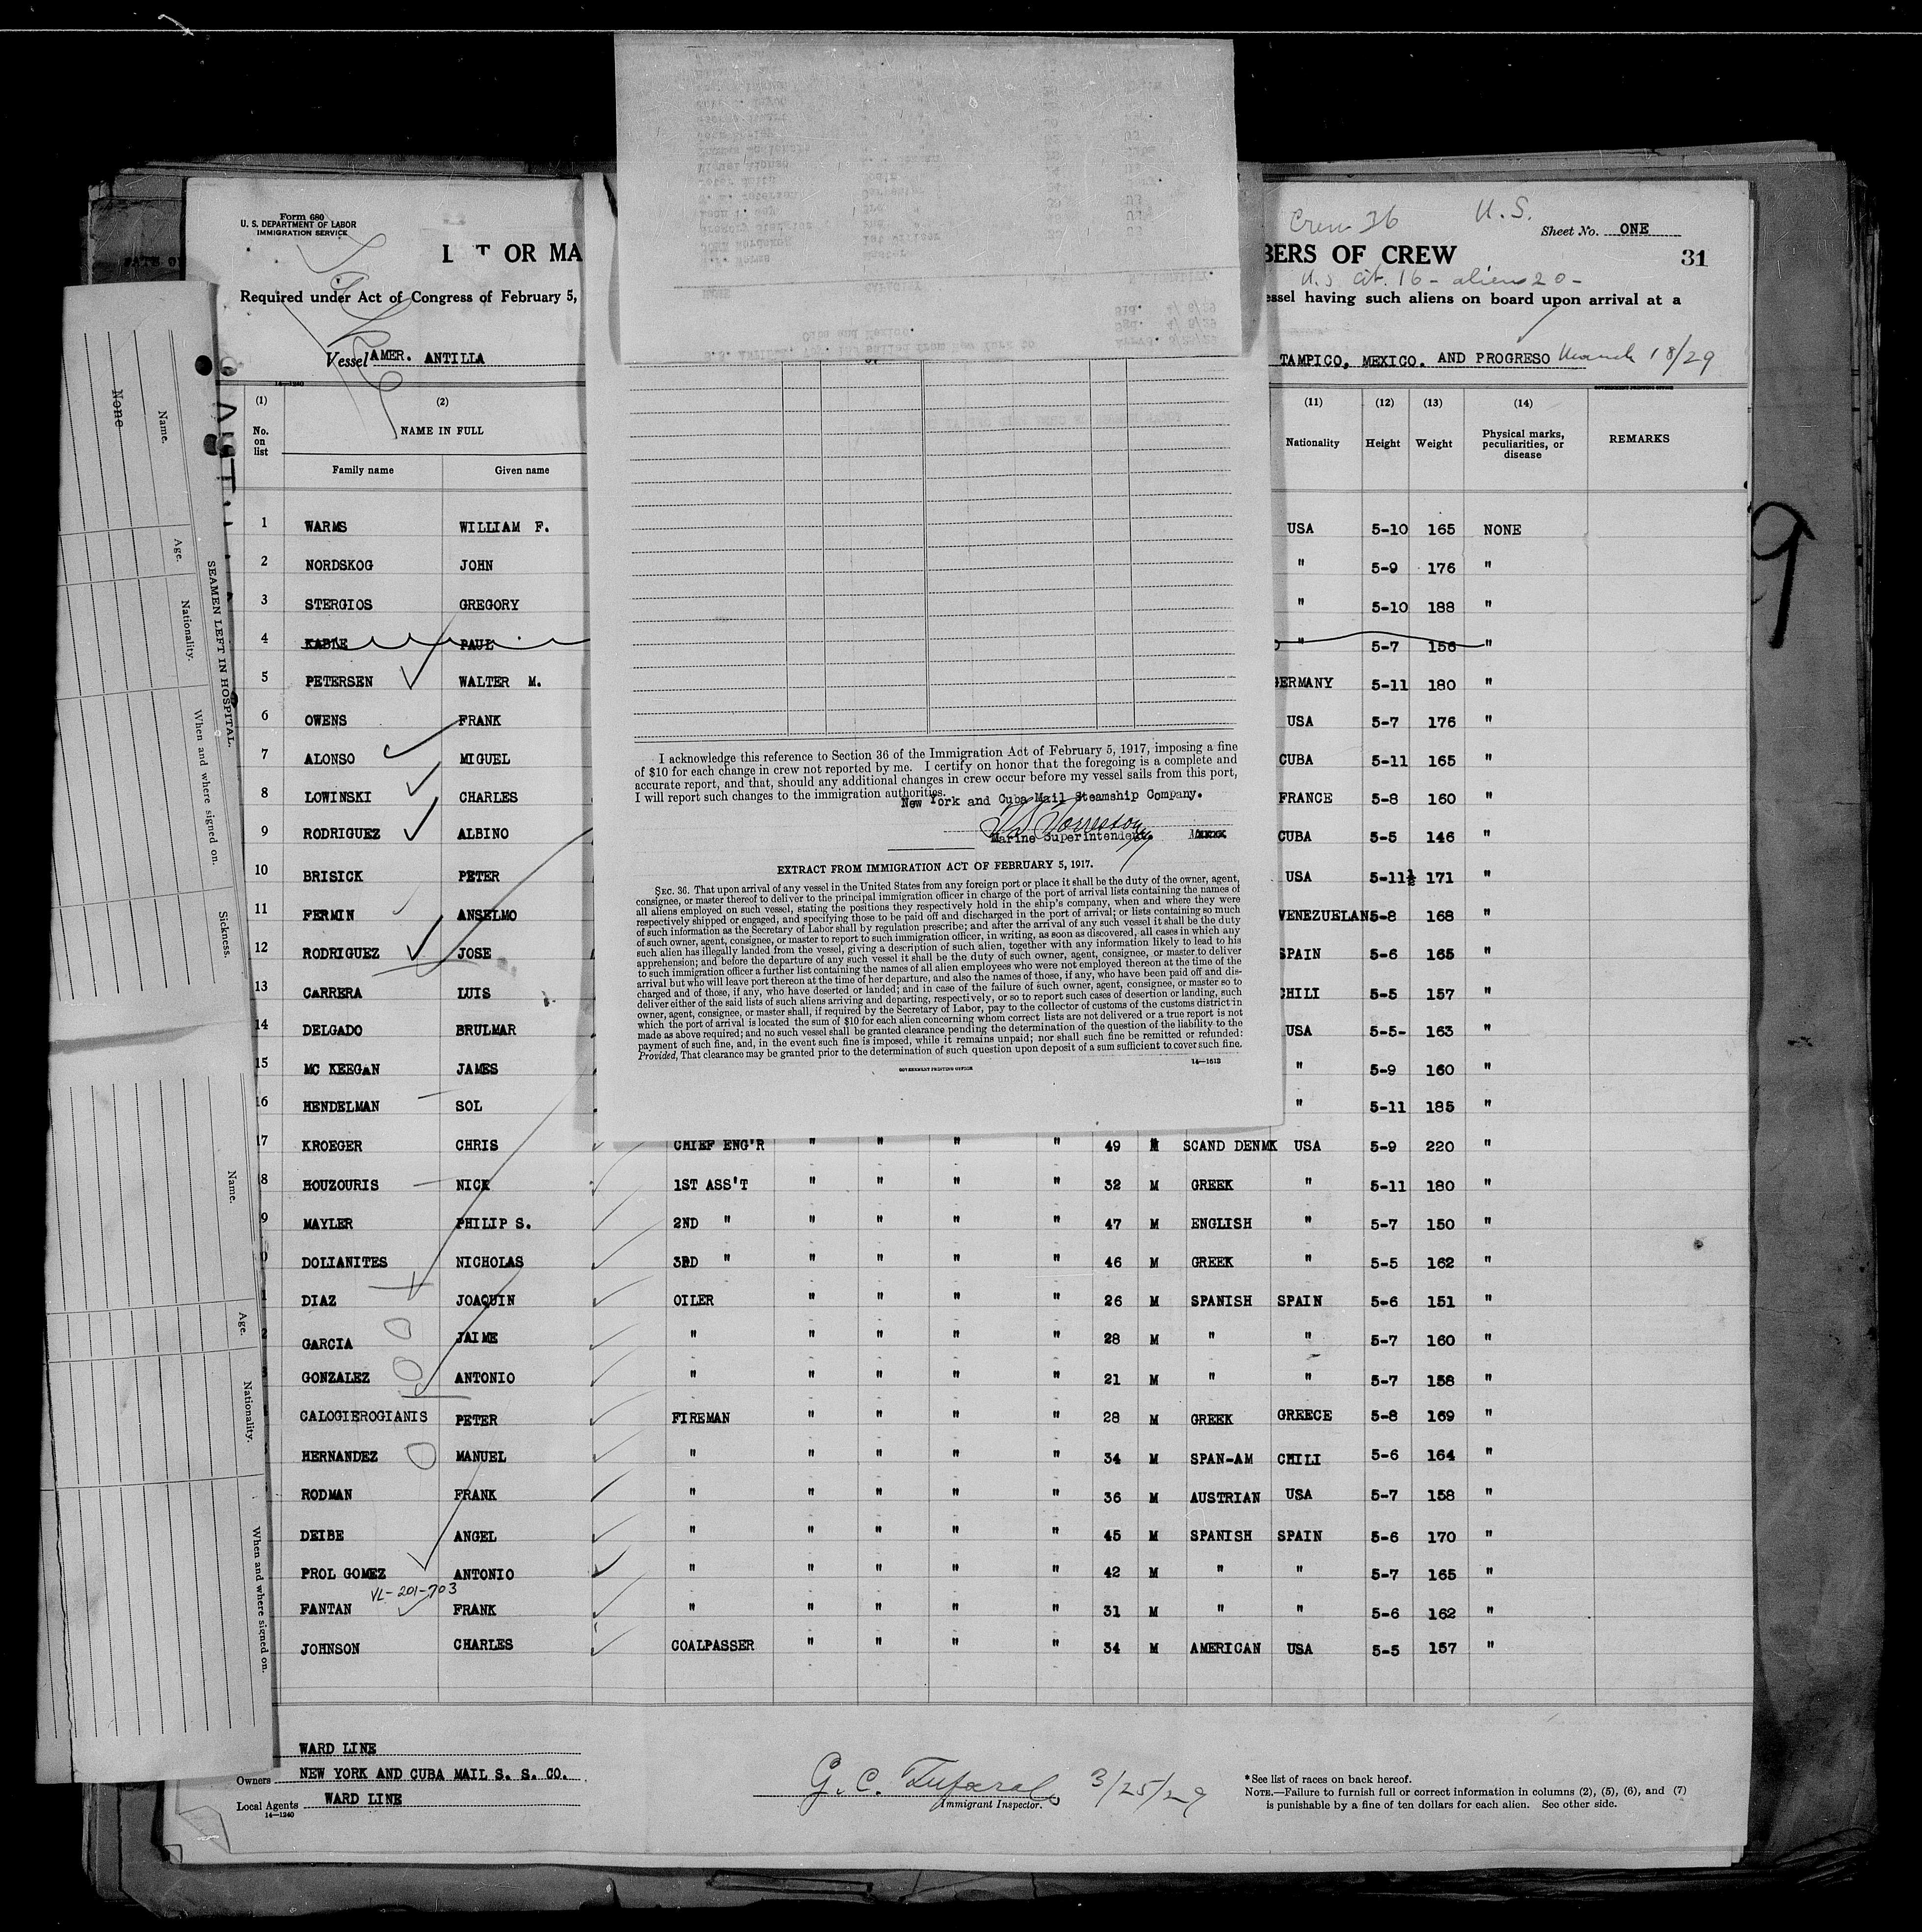 Form 680
U. S. DEPARTMENT OF LABOR
IMMIGRATION SERVICE
Crew 36 U.S.
Sheet No. ONE
OR MA
BERS OF CREW
31
U.S. cit. 16 - aliens 20 -
Required under Act of Congress of February 5,
essel having such aliens on board upon arrival at a
Vessel AMER. ANTILLA
TAMPICO, MEXICO. AND PROGRESO March 18/29
14—1240
GOVERNMENT PRINTING OFFICE
(1) (2) (11) (12) (13) (14)
No. on list NAME IN FULL Nationality Height Weight Physical marks, peculiarities, or disease REMARKS
Family name Given name
1 WARMS WILLIAM F. USA 5-10 165 NONE
2 NORDSKOG JOHN " 5-9 176 "
3 STERGIOS GREGORY " 5-10 188 "
4 KABLE PAUL " 5-7 156 "
5 PETERSEN WALTER M. ERMANY 5-11 180 "
6 OWENS FRANK USA 5-7 176 "
7 ALONSO MIGUEL CUBA 5-11 165 "
8 LOWINSKI CHARLES FRANCE 5-8 160 "
9 RODRIGUEZ ALBINO CUBA 5-5 146 "
10 BRISICK PETER USA 5-11½ 171 "
11 FERMIN ANSELMO VENEZUELAN 5-8 168 "
12 RODRIGUEZ JOSE SPAIN 5-6 165 "
13 CARRERA LUIS CHILI 5-5 157 "
14 DELGADO BRULMAR USA 5-5- 163 "
15 MC KEEGAN JAMES " 5-9 160 "
16 HENDELMAN SOL " 5-11 185 "
7 KROEGER CHRIS CHIEF ENG'R " " " " 49 M SCAND DENMK USA 5-9 220 "
8 HOUZOURIS NICK 1ST ASS'T " " " " 32 M GREEK " 5-11 180 "
9 MAYLER PHILIP S. 2ND " " " " " 47 M ENGLISH " 5-7 150 "
0 DOLIANITES NICHOLAS 3RD " " " " " 46 M GREEK " 5-5 162 "
1 DIAZ JOAQUIN OILER " " " " 26 M SPANISH SPAIN 5-6 151 "
2 GARCIA JAIME " " " " " 28 M " " 5-7 160 "
GONZALEZ ANTONIO " " " " " 21 M " " 5-7 158 "
CALOGIEROGIANIS PETER FIREMAN " " " " 28 M GREEK GREECE 5-8 169 "
HERNANDEZ MANUEL " " " " " 34 M SPAN-AM CHILI 5-6 164 "
RODMAN FRANK " " " " " 36 M AUSTRIAN USA 5-7 158 "
DEIBE ANGEL " " " " " 45 M SPANISH SPAIN 5-6 170 "
PROL GOMEZ ANTONIO " " " " " 42 M " " 5-7 165 "
VL-201-703
FANTAN FRANK " " " " " 31 M " " 5-6 162 "
JOHNSON CHARLES COALPASSER " " " " 34 M AMERICAN USA 5-5 157 "
WARD LINE
Owners NEW YORK AND CUBA MAIL S. S. CO.
Local Agents WARD LINE
14—1240
G. C. 3/25/29
Immigrant Inspector.
*See list of races on back hereof.
NOTE.—Failure to furnish full or correct information in columns (2), (5), (6), and (7)
is punishable by a fine of ten dollars for each alien. See other side.
I acknowledge this reference to Section 36 of the Immigration Act of February 5, 1917, imposing a fine
of $10 for each change in crew not reported by me. I certify on honor that the foregoing is a complete and
accurate report, and that, should any additional changes in crew occur before my vessel sails from this port,
I will report such changes to the immigration authorities.
New York and Cuba Mail Steamship Company.
Marine Superintendent.
EXTRACT FROM IMMIGRATION ACT OF FEBRUARY 5, 1917.
SEC. 36. That upon arrival of any vessel in the United States from any foreign port or place it shall be the duty of the owner, agent,
consignee, or master thereof to deliver to the principal immigration officer in charge of the port of arrival lists containing the names of
all aliens employed on such vessel, stating the positions they respectively hold in the ship's company, when and where they were
respectively shipped or engaged, and specifying those to be paid off and discharged in the port of arrival; or lists containing so much
of such information as the Secretary of Labor shall by regulation prescribe; and after the arrival of any such vessel it shall be the duty
of such owner, agent, consignee, or master to report to such immigration officer, in writing, as soon as discovered, all cases in which any
such alien has illegally landed from the vessel, giving a description of such alien, together with any information likely to lead to his
apprehension; and before the departure of any such vessel it shall be the duty of such owner, agent, consignee, or master to deliver
to such immigration officer a further list containing the names of all alien employees who were not employed thereon at the time of the
arrival but who will leave port thereon at the time of her departure, and also the names of those, if any, who have been paid off and dis-
charged and of those, if any, who have deserted or landed; and in case of the failure of such owner, agent, consignee, or master so to
deliver either of the said lists of such aliens arriving and departing, respectively, or so to report such cases of desertion or landing, such
owner, agent, consignee, or master shall, if required by the Secretary of Labor, pay to the collector of customs of the customs district in
which the port of arrival is located the sum of $10 for each alien concerning whom correct lists are not delivered or a true report is not
made as above required; and no such vessel shall be granted clearance pending the determination of the question of the liability to the
payment of such fine, and, in the event such fine is imposed, while it remains unpaid; nor shall such fine be remitted or refunded:
Provided, That clearance may be granted prior to the determination of such question upon deposit of a sum sufficient to cover such fine.
14—1613
GOVERNMENT PRINTING OFFICE
SEAMEN LEFT IN HOSPITAL.
Name. Age. Nationality. When and where signed on. Sickness.
None
Name. Age. Nationality. When and where signed on.
9